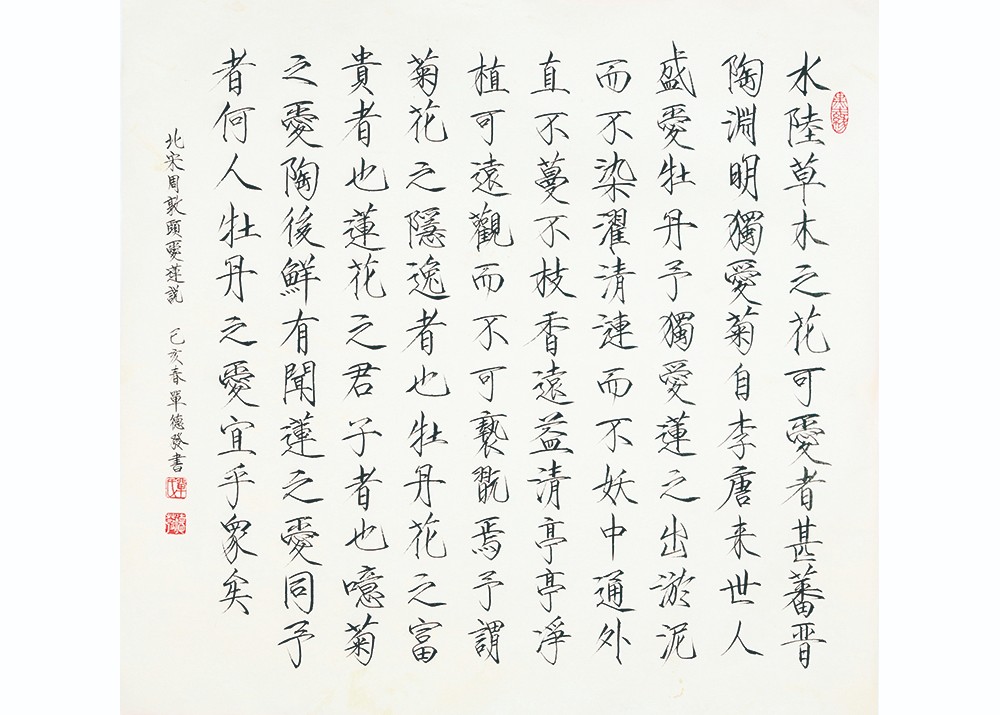 水陸草木之花可愛者甚蕃晋
陶淵明獨愛菊自李唐来世人
盛愛牡丹予獨愛蓮之出淤泥
而不染濯清連而不妖中通外
直不蔓不枝香遠益清亭亭淨
植可遠觀而不可褻翫焉予謂
菊花之隱逸者也牡丹花之富
貴者也蓮花之君子者也噫菊
之愛陶後鮮有聞蓮之愛同予
者何人牡丹之愛宜乎眾矣
北宋周敦頤愛蓮説 己亥春單德發書